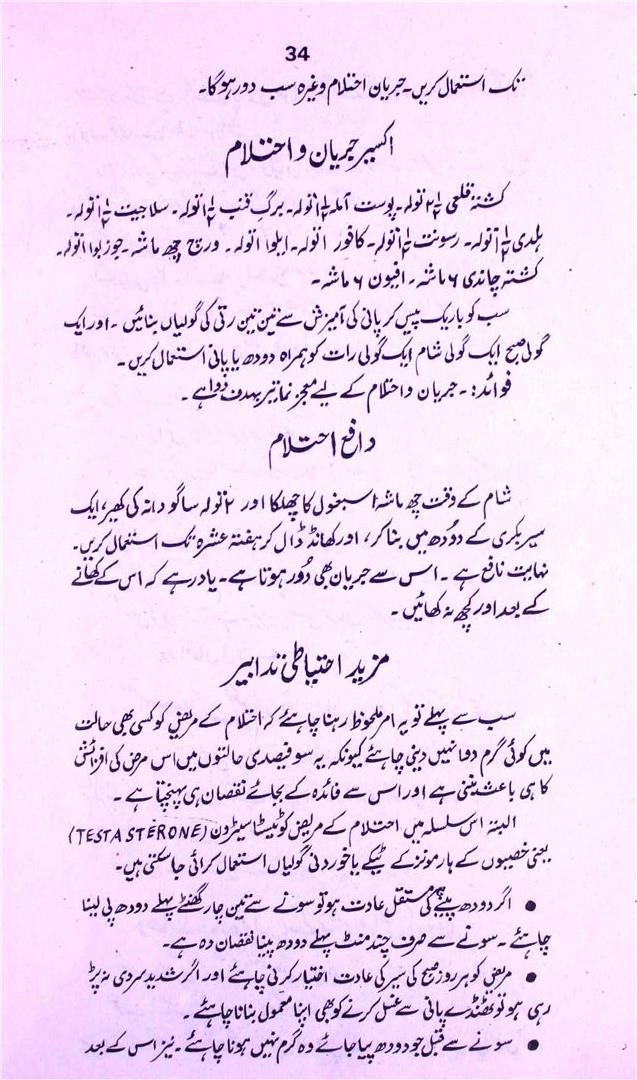 34
تک استعمال کریں۔ جریان احتلام وغیرہ سب دور ہوگا۔
اکسیر جریان و احتلام
کشتۂ قلعی ۲½ تولہ۔ پوست آملہ ۱½ تولہ۔ برگ قنب ۱½ تولہ۔ سلاجیت ۱½ تولہ۔
ہلدی ۱½ تولہ۔ رسونت ۱½ تولہ۔ کافور ۱ تولہ۔ ایلوا ۱ تولہ۔ ورج چھ ماشہ۔ جوزبوا ۱ تولہ۔
کشتہ چاندی ۶ ماشہ۔ افیون ۶ ماشہ۔
سب کو باریک پیس کر پانی کی آمیزش سے تین تین رتی کی گولیاں بنائیں۔ اور ایک
گولی صبح ایک گولی شام ایک گولی رات کو ہمراہ دودھ یا پانی استعمال کریں۔
فوائد:۔ جریان و احتلام کے لیے معجز نما تیر بہدف دوا ہے۔
دافع احتلام
شام کے وقت چھ ماشہ اسبغول کا چھلکا اور ۲ تولہ ساگو دانہ کی کھیر، ایک
سیر بکری کے دودھ میں بنا کر، اور کھانڈ ڈال کر ہفتہ عشرہ تک استعمال کریں۔
نہایت نافع ہے۔ اس سے جریان بھی دُور ہوتا ہے۔ یاد رہے کہ اس کے کھانے
کے بعد اور کچھ نہ کھائیں۔
مزید احتیاطی تدابیر
سب سے پہلے تو یہ امر ملحوظ رہنا چاہئے کہ احتلام کے مریض کو کسی بھی حالت
میں کوئی گرم دوا نہیں دینی چاہئے کیونکہ یہ سو فیصدی حالتوں میں اس مرض کی افزائش
کا ہی باعث بنتی ہے اور اس سے فائدہ کے بجائے نقصان ہی پہنچتا ہے۔
البتہ اس سلسلہ میں احتلام کے مریض کو ٹیسٹا سیٹرون (TESTA STERONE)
یعنی خصیوں کے ہارمونز کے ٹیکے یا خوردنی گولیاں استعمال کرائی جا سکتی ہیں۔
● اگر دودھ پینے کی مستقل عادت ہو تو سونے سے تین چار گھنٹے پہلے دودھ پی لینا
چاہئے۔ سونے سے صرف چند منٹ پہلے دودھ پینا نقصان دہ ہے۔
● مریض کو ہر روز صبح کی سیر کی عادت اختیار کرنی چاہئے اور اگر شدید سردی نہ پڑ
رہی ہو تو ٹھنڈے پانی سے غسل کرنے کو بھی اپنا معمول بنانا چاہئے۔
● سونے سے قبل جو دودھ پیا جائے وہ گرم نہیں ہونا چاہئے۔ نیز اس کے بعد